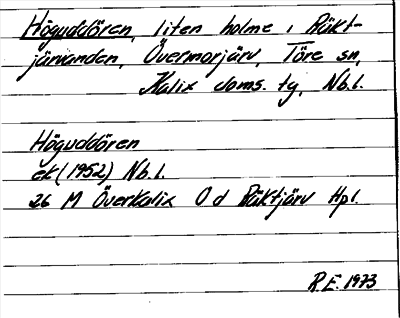 Höguddören, liten holme i Räkt-
järvanden, Övermorjärv, Töre sn,
Kalix doms. tg, Nb. l.
Höguddören
ek (1952) Nb. l.
26 M Överkalix O d Räktjärv Hpl.
R.E. 1973